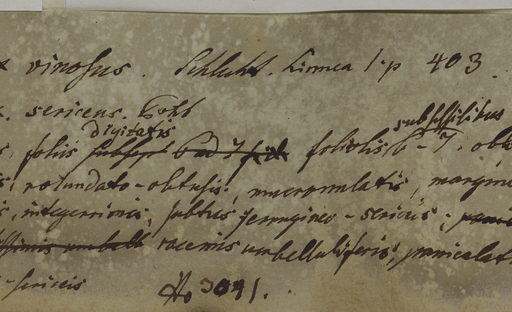 x vinosus. Schlcht. Linnea 1. p 403.
x. sericeus. Pohl
digitatis subsessilibus
s, foliis foliolis 6-7. oblo
s, rotundato-obtusis, mucronulatis, margine
s, integerrimis, subtus ferrugineo-sericeis;
racemis umbelluliferis, paniculat
-sericeis No 3091.